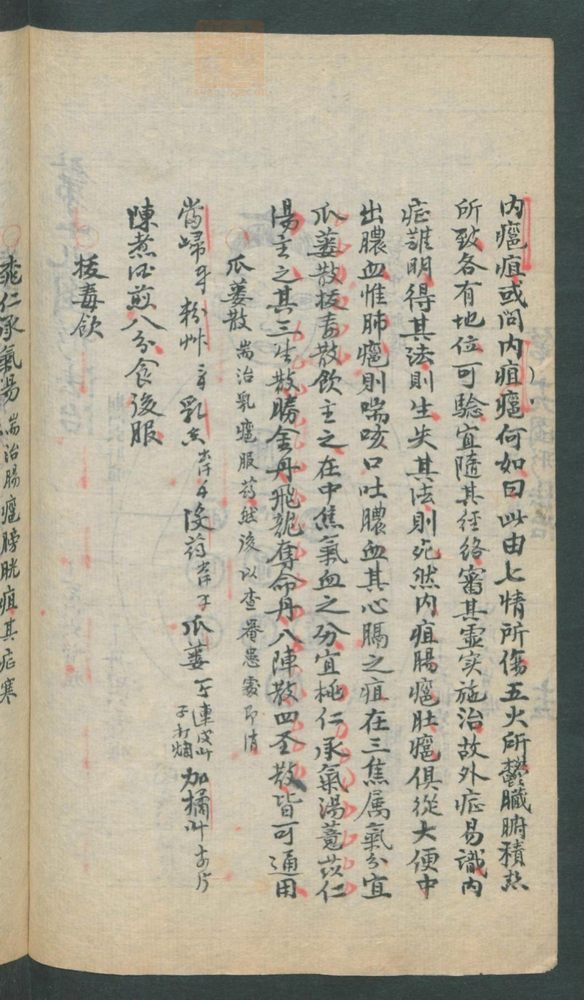 內癰疽或问内疽癰何如曰此由七情所傷五火所鬱臟腑積热
所致各有地位可驗宜隨其徑絡審其虛实施治故外症易識内
症難明得其法則生失其法則死然内疽腸癰肚癰俱從大便中
出膿血惟肺癰則喘咳口吐膿血其心膈之疽在三焦属氣分宜
瓜蔞散拔毒散飲主之在中焦氣血之分宜桃仁承氣湯薏苡仁
湯主之其三生散勝金丹飛龍奪命丹八陣散四圣散皆可通用
瓜蔞散 耑治乳癰服葯然後以查罨患處即消
當歸 粉艸 乳香 没葯 瓜蔞 連皮 子打爛 加橘叶 片
陳煮酒煎八分食後服
拔毒飲
桃仁承氣湯 耑治腸癰膀胱疽其症寒